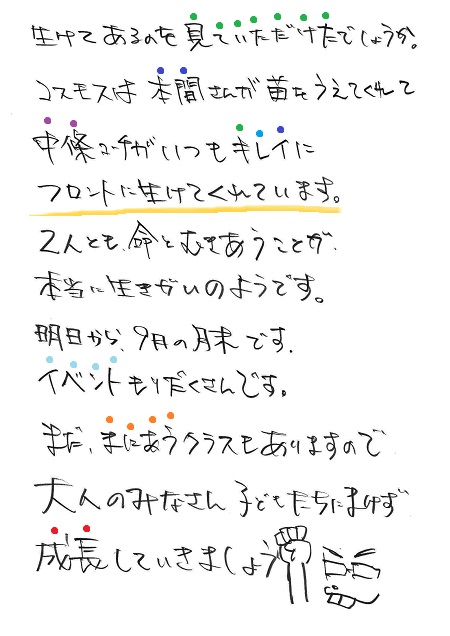 生けてあるのを見ていただけたでしょうか。
コスモスは本間さんが苗をうえてくれて
中條コーチがいつもキレイに
フロントに生けてくれています。
2人とも、命とむきあうことが、
本当に生きがいのようです。
明日から、9月の月末です。
イベントもりだくさんです。
まだ、まにあうクラスもありますので
大人のみなさん子どもたちにまけず
成長していきましょう